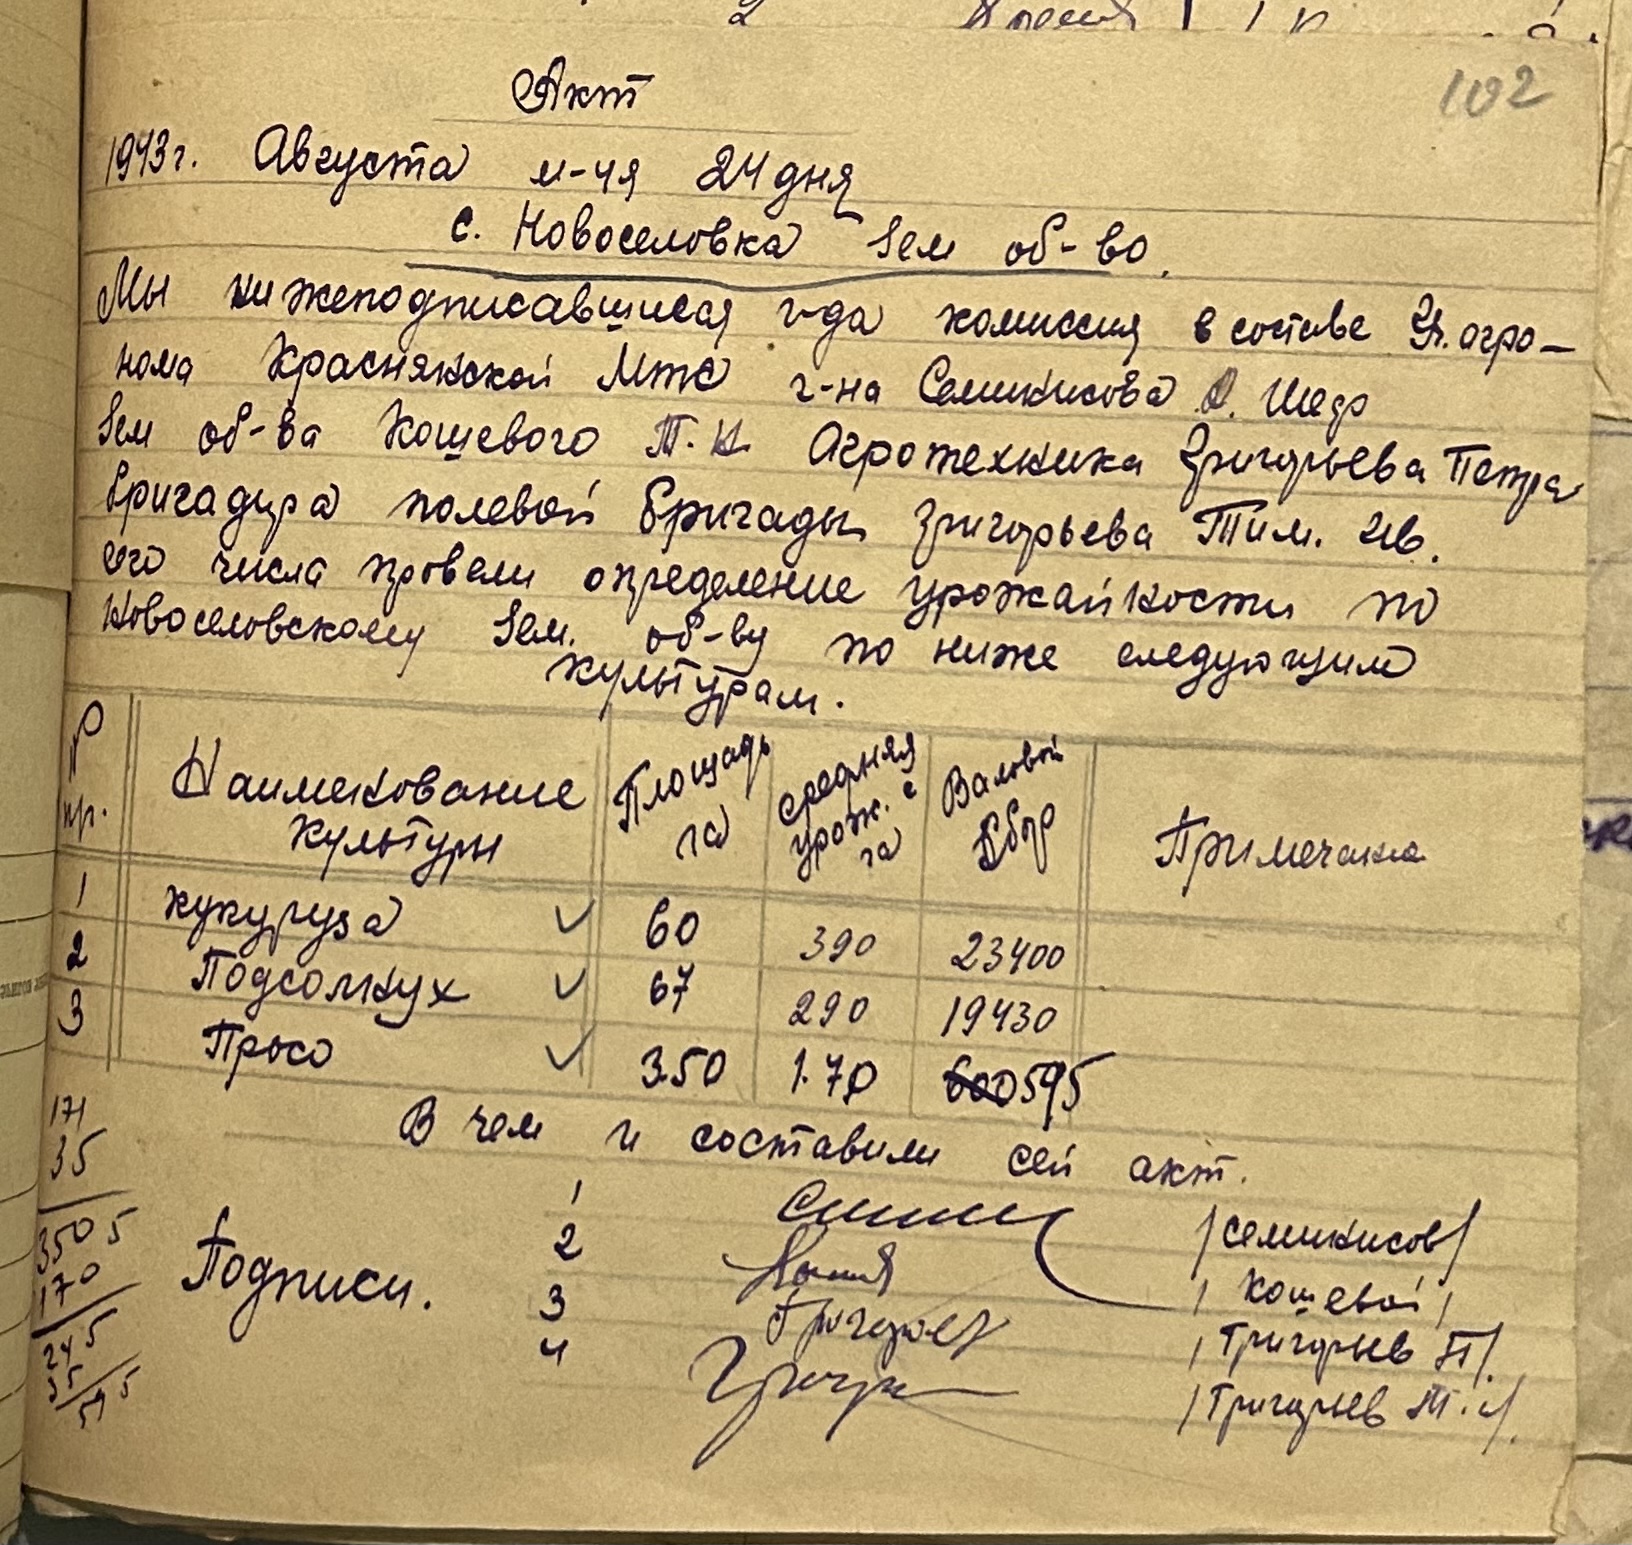 102
Акт
1943г. Августа м-ця 24 дня
с. Новоселовка Зем об-во.
Мы нижеподписавшиеся г-да комиссия в составе Уч. агро-
нома Краснянской Мтс г-на Семикисова
Зем об-ва Кошевого Т. Н. Агротехника Григорьева Петра
бригадира полевой бригады Григорьева Тим. Ив.
сего числа провели определение урожайности по
Новоселовскому Зем. об-ву по ниже следующим
культурам.
№ пр. Наименование культуры Площадь га Средняя урож. с га Валовой сбор Примечание
1 Кукуруза ✓ 60 390 23400
2 Подсолнух ✓ 67 290 19430
3 Просо ✓ 3.50 1.70 600 595
В чем и составили сей акт.
Подписи.
1 /Семикисов/
2 / Кошевой /
3 Григорьев / Григорьев П/.
4 / Григорьев Т. И/.
171
35
3505
170
245
35
595